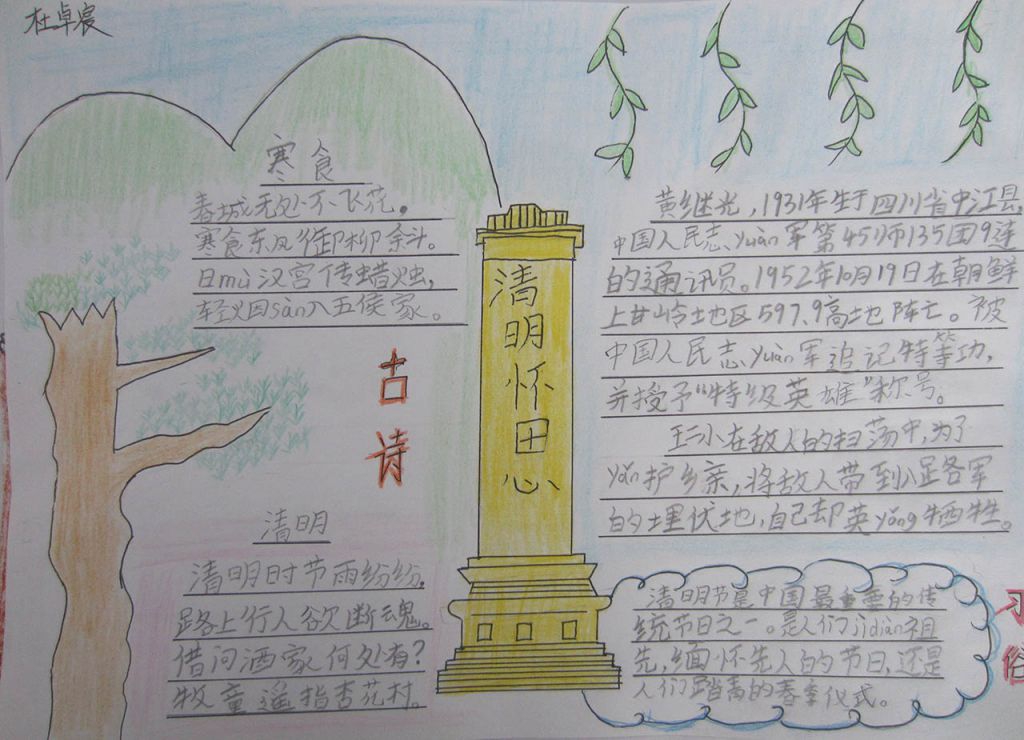 杜卓宸
寒食
春城无处不飞花,
寒食东风御柳斜。
日mù汉宫传蜡烛,
轻火因sàn入五侯家。
古诗
清明
清明时节雨纷纷,
路上行人欲断魂。
借问酒家何处有?
牧童遥指杏花村。
清明怀思
黄继光,1931年生于四川省中江县,
中国人民志yuàn军第45师135团9连
的通讯员。1952年10月19日在朝鲜
上甘岭地区597.9高地阵亡。被
中国人民志yuàn军追记特等功,
并授予“特级英雄”称号。
王二小在敌人的扫荡中,为了
yǎn护乡亲,将敌人带到八路军
的埋伏地,自己却英yǒng牺牲。
清明节是中国最重要的传
统节日之一。是人们jìdiàn祖
先,缅怀先人的节日,还是
人们踏青的春季仪式。
习俗